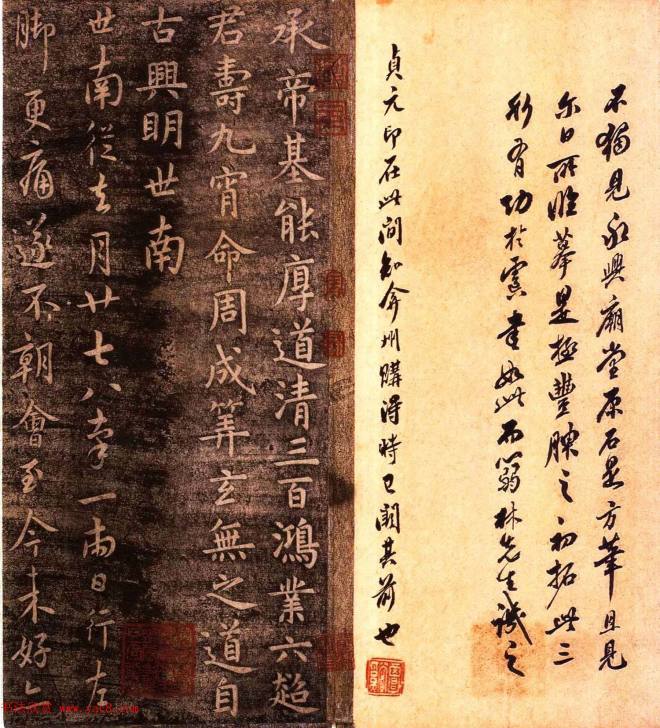 不獨見永興廟堂原石是方華且見
尔日所雕摹是極豐腴之初拓此三
形有功於虞書如此而蒻林先生識之
貞元印在此間知弇州購得時已闕其前也
承帝基能厚道清三百鴻業六超
君壽九霄命周成筭玄無之道自
古興明世南
世南從去月廿七八率一兩日行左
脚更痛遂不朝會至今未好亦